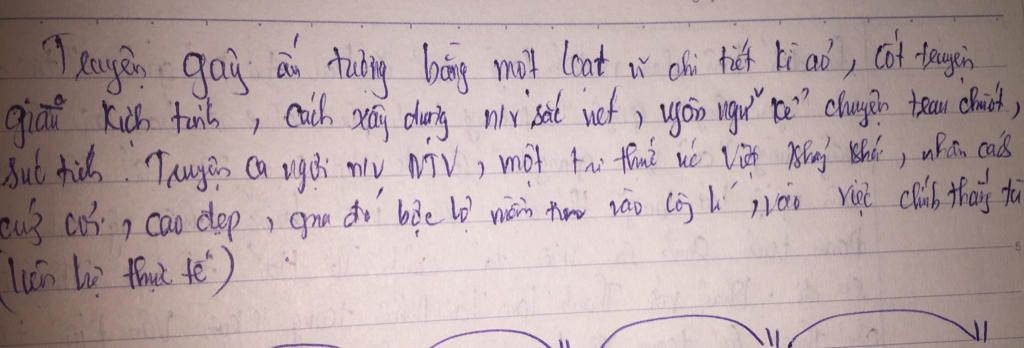 Truyện gây ấn tượng bằng một loạt chi tiết kì ảo, cốt truyện
giàu kịch tính, cách xây dựng n/v sắc nét, ngôn ngữ kể chuyện trau chuốt,
súc tích. Truyện ca ngợi n/v NTV, một trí thức nước Việt khẳng khái, nhân cách
cứng cỏi, cao đẹp, qua đó bộc lộ niềm tin vào công lí, vào việc chính thắng tà
(liên hệ thực tế)